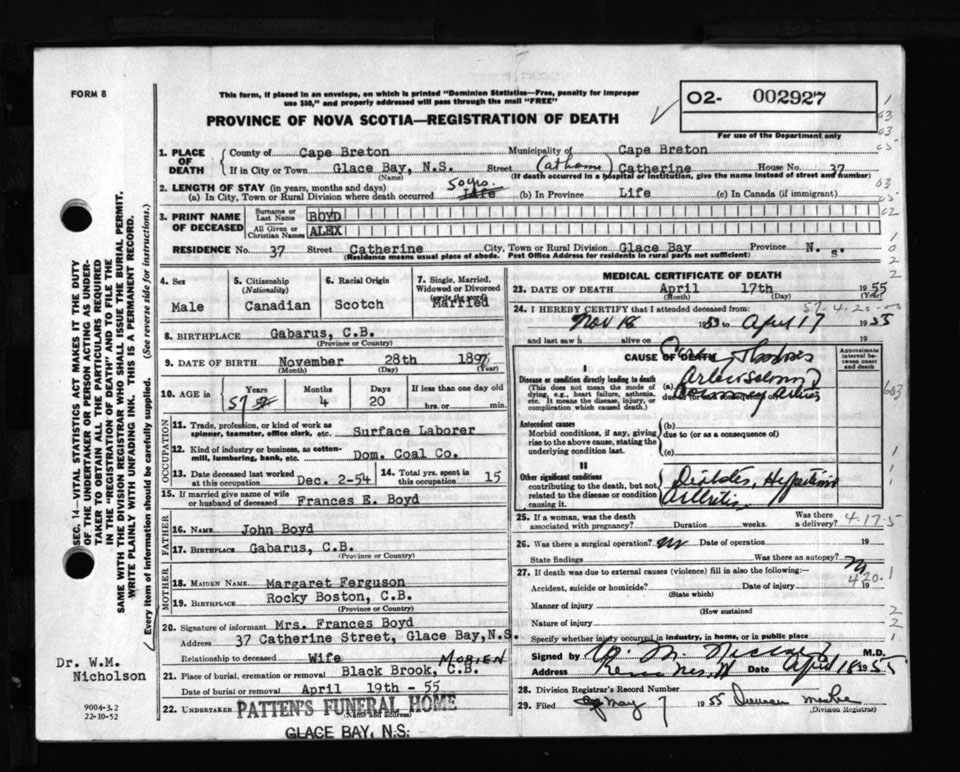 FORM 8
This form, if placed in an envelope, on which is printed "Dominion Statistics—Free, penalty for improper
use $50," and properly addressed will pass through the mail "FREE"
PROVINCE OF NOVA SCOTIA—REGISTRATION OF DEATH
02- 002927
For use of the Department only
1. PLACE OF DEATH
County of Cape Breton Municipality of Cape Breton
If in City or Town Glace Bay, N.S. Street (at home) Catherine House No. 37
(Name) (If death occurred in a hospital or institution, give the name instead of street and number)
2. LENGTH OF STAY (in years, months and days)
(a) In City, Town or Rural Division where death occurred 50 yrs. Life (b) In Province Life (c) In Canada (if immigrant)
3. PRINT NAME OF DECEASED
Surname or Last Name BOYD
All Given or Christian Names ALEX
RESIDENCE No. 37 Street Catherine City, Town or Rural Division Glace Bay Province N. S.
(Residence means usual place of abode. Post Office Address for residents in rural parts not sufficient)
4. Sex Male
5. Citizenship (Nationality) Canadian
6. Racial Origin Scotch
7. Single, Married, Widowed or Divorced (write the word) Married
8. BIRTHPLACE Gabarus, C.B.
(Province or Country)
9. DATE OF BIRTH November 28th 1897
(Month) (Day) (Year)
10. AGE in Years 57 Months 4 Days 20 If less than one day old hrs. or min.
OCCUPATION
11. Trade, profession, or kind of work as spinner, teamster, office clerk, etc. Surface Laborer
12. Kind of industry or business, as cotton-mill, lumbering, bank, etc. Dom. Coal Co.
13. Date deceased last worked at this occupation Dec. 2-54
14. Total yrs. spent in this occupation 15
15. If married give name of wife or husband of deceased Frances E. Boyd
FATHER
16. NAME John Boyd
17. BIRTHPLACE Gabarus, C.B.
(Province or Country)
MOTHER
18. MAIDEN NAME Margaret Ferguson
19. BIRTHPLACE Rocky Boston, C.B.
(Province or Country)
20. Signature of informant Mrs. Frances Boyd
Address 37 Catherine Street, Glace Bay, N.S.
Relationship to deceased Wife
21. Place of burial, cremation or removal Black Brook, C.B. MORIEN
Date of burial or removal April 19th - 55
22. UNDERTAKER PATTEN'S FUNERAL HOME
(Name and address)
GLACE BAY, N.S.
MEDICAL CERTIFICATE OF DEATH
23. DATE OF DEATH April 17th 1955
(Month) (Day) (Year)
57-4-20
24. I HEREBY CERTIFY that I attended deceased from:
Nov 18 1953 to April 17 1955
and last saw h alive on 19
CAUSE OF DEATH
Approximate interval between onset and death
I
Disease or condition directly leading to death
(This does not mean the mode of dying, e.g., heart failure, asthenia, etc. It means the disease, injury, or complication which caused death.)
(a)
due to (or as a consequence of)
Antecedent causes
Morbid conditions, if any, giving rise to the above cause, stating the underlying condition last.
(b)
due to (or as a consequence of)
(c)
II
Other significant conditions contributing to the death, but not related to the disease or condition causing it.
Diabetes,
Arthritis
25. If a woman, was the death associated with pregnancy? Duration weeks. Was there a delivery?
4-17-5
26. Was there a surgical operation? no Date of operation 19
State findings Was there an autopsy? no
27. If death was due to external causes (violence) fill in also the following:—
420.1
Accident, suicide or homicide? Date of injury 19
(State which)
Manner of injury
(How sustained)
Nature of injury
Specify whether injury occurred in industry, in home, or in public place
Signed by M.D.
Address Date April 18 1955
28. Division Registrar's Record Number
29. Filed May 7 1955 Duncan
(Division Registrar)
SEC. 14—VITAL STATISTICS ACT MAKES IT THE DUTY
OF THE UNDERTAKER OR PERSON ACTING AS UNDER-
TAKER TO OBTAIN ALL THE PARTICULARS REQUIRED
IN THE "REGISTRATION OF DEATH" AND TO FILE THE
SAME WITH THE DIVISION REGISTRAR WHO SHALL ISSUE THE BURIAL PERMIT.
WRITE PLAINLY WITH UNFADING INK. THIS IS A PERMANENT RECORD.
Every item of information should be carefully supplied. (See reverse side for instructions.)
Dr. W.M.
Nicholson
9004-3.2
22-10-52